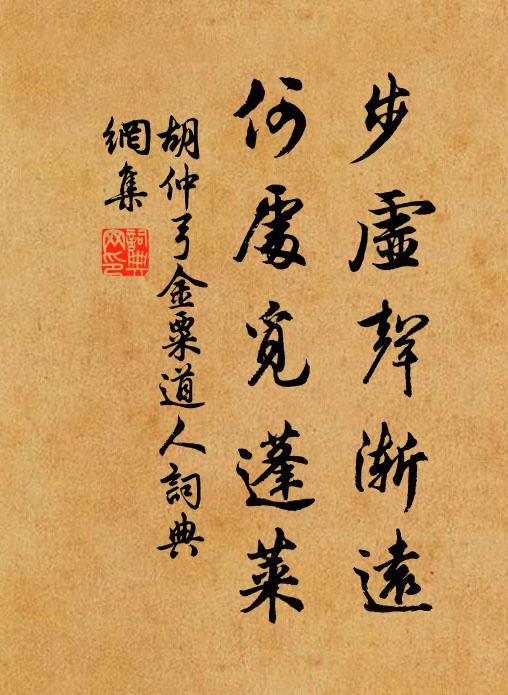 步虛聲漸遠
何處覓蓬萊
胡仲弓金粟道人詞典
網集
詞典網印